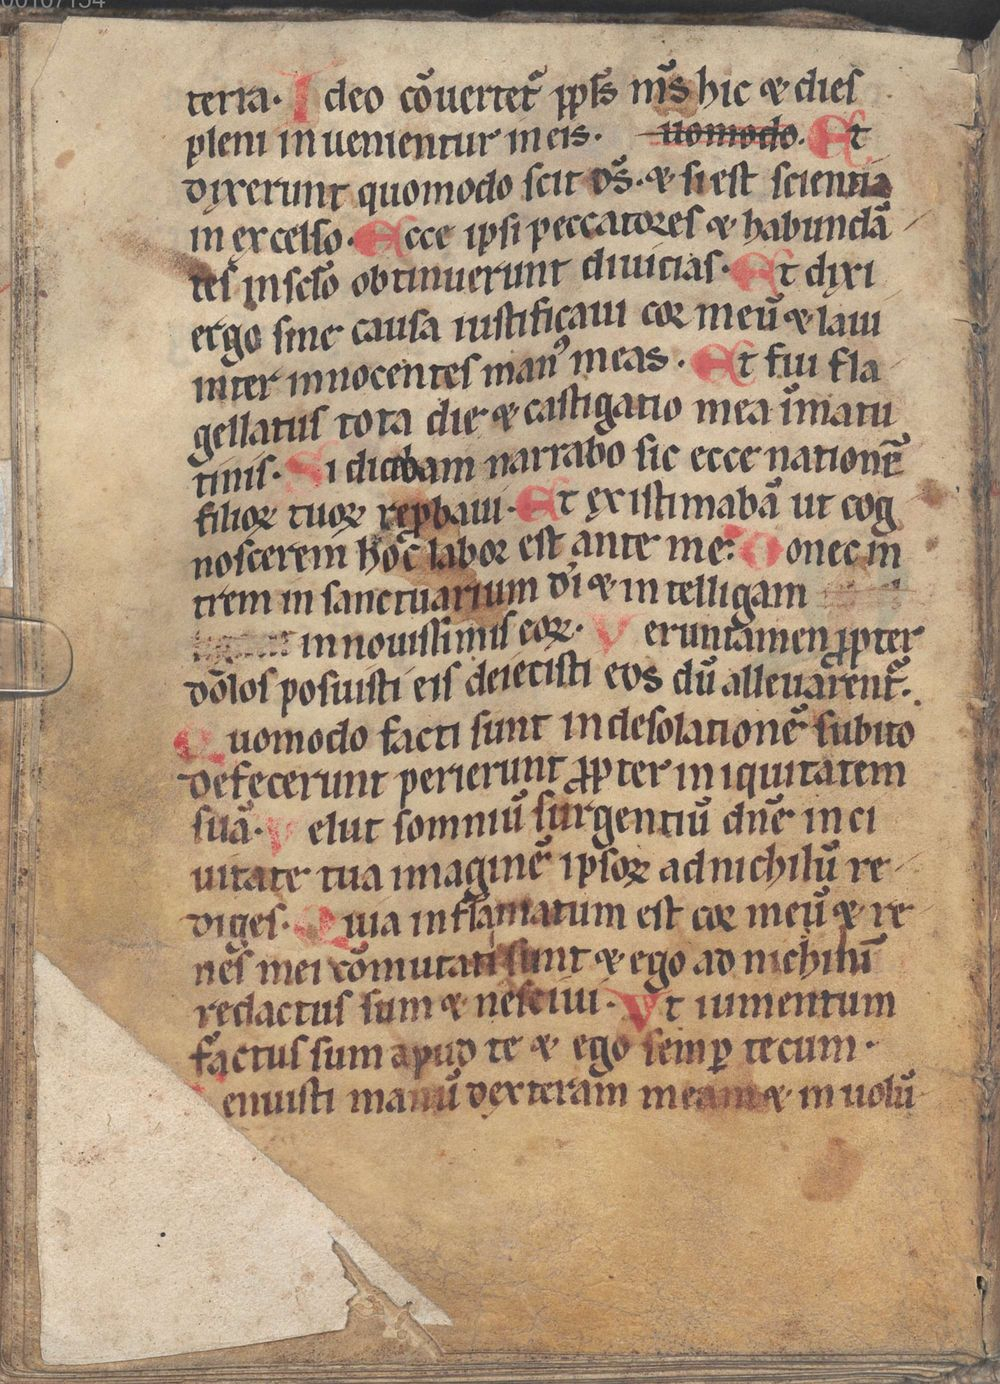 terra. Ideo cōuertet᷑ pp̄ls m̄s hic ⁊ dies
pleni inuenientur in eis. uomodo. Et
dixerunt quomodo scit ds̄. ⁊ si est scientia
in excelso. Ecce ipsi peccatores ⁊ habundā
tes in sclo̅ obtinuerunt diuicias. Et dixi
ergo sine causa iustificaui cor meū ⁊ laui
inter innocentes manꝰ meas. Et fui fla
gellatus tota die ⁊ castigatio mea ī matu
tinis. Si dicebam narrabo sic ecce nationē
filioꝝ tuoꝝ rep̱baui. Et existimabā ut cog
noscerem hoc labor est ante me. Donec in
trem in sanctuarium dī ⁊ intelligam
in nouissimis eoꝝ. Veruntamen ꝓpter
dōlos posuisti eis deiecisti eos dū alleuarent᷑.
Quomodo facti sunt in desolationē subito
defecerunt perierunt ꝓpter iniquitatem
suā. Velut somniū surgentiū dn̄e in ci
uitate tua imaginē ipsoꝝ ad nichilū re
diges. Quia inflamatum est cor meū ⁊ re
nēs mei cōmutati sunt ⁊ ego ad nichilū
redactus sum ⁊ nesciui. Vt iumentum
factus sum apud te ⁊ ego semꝑ tecum.
enuisti manū dexteram meam ⁊ in uolū